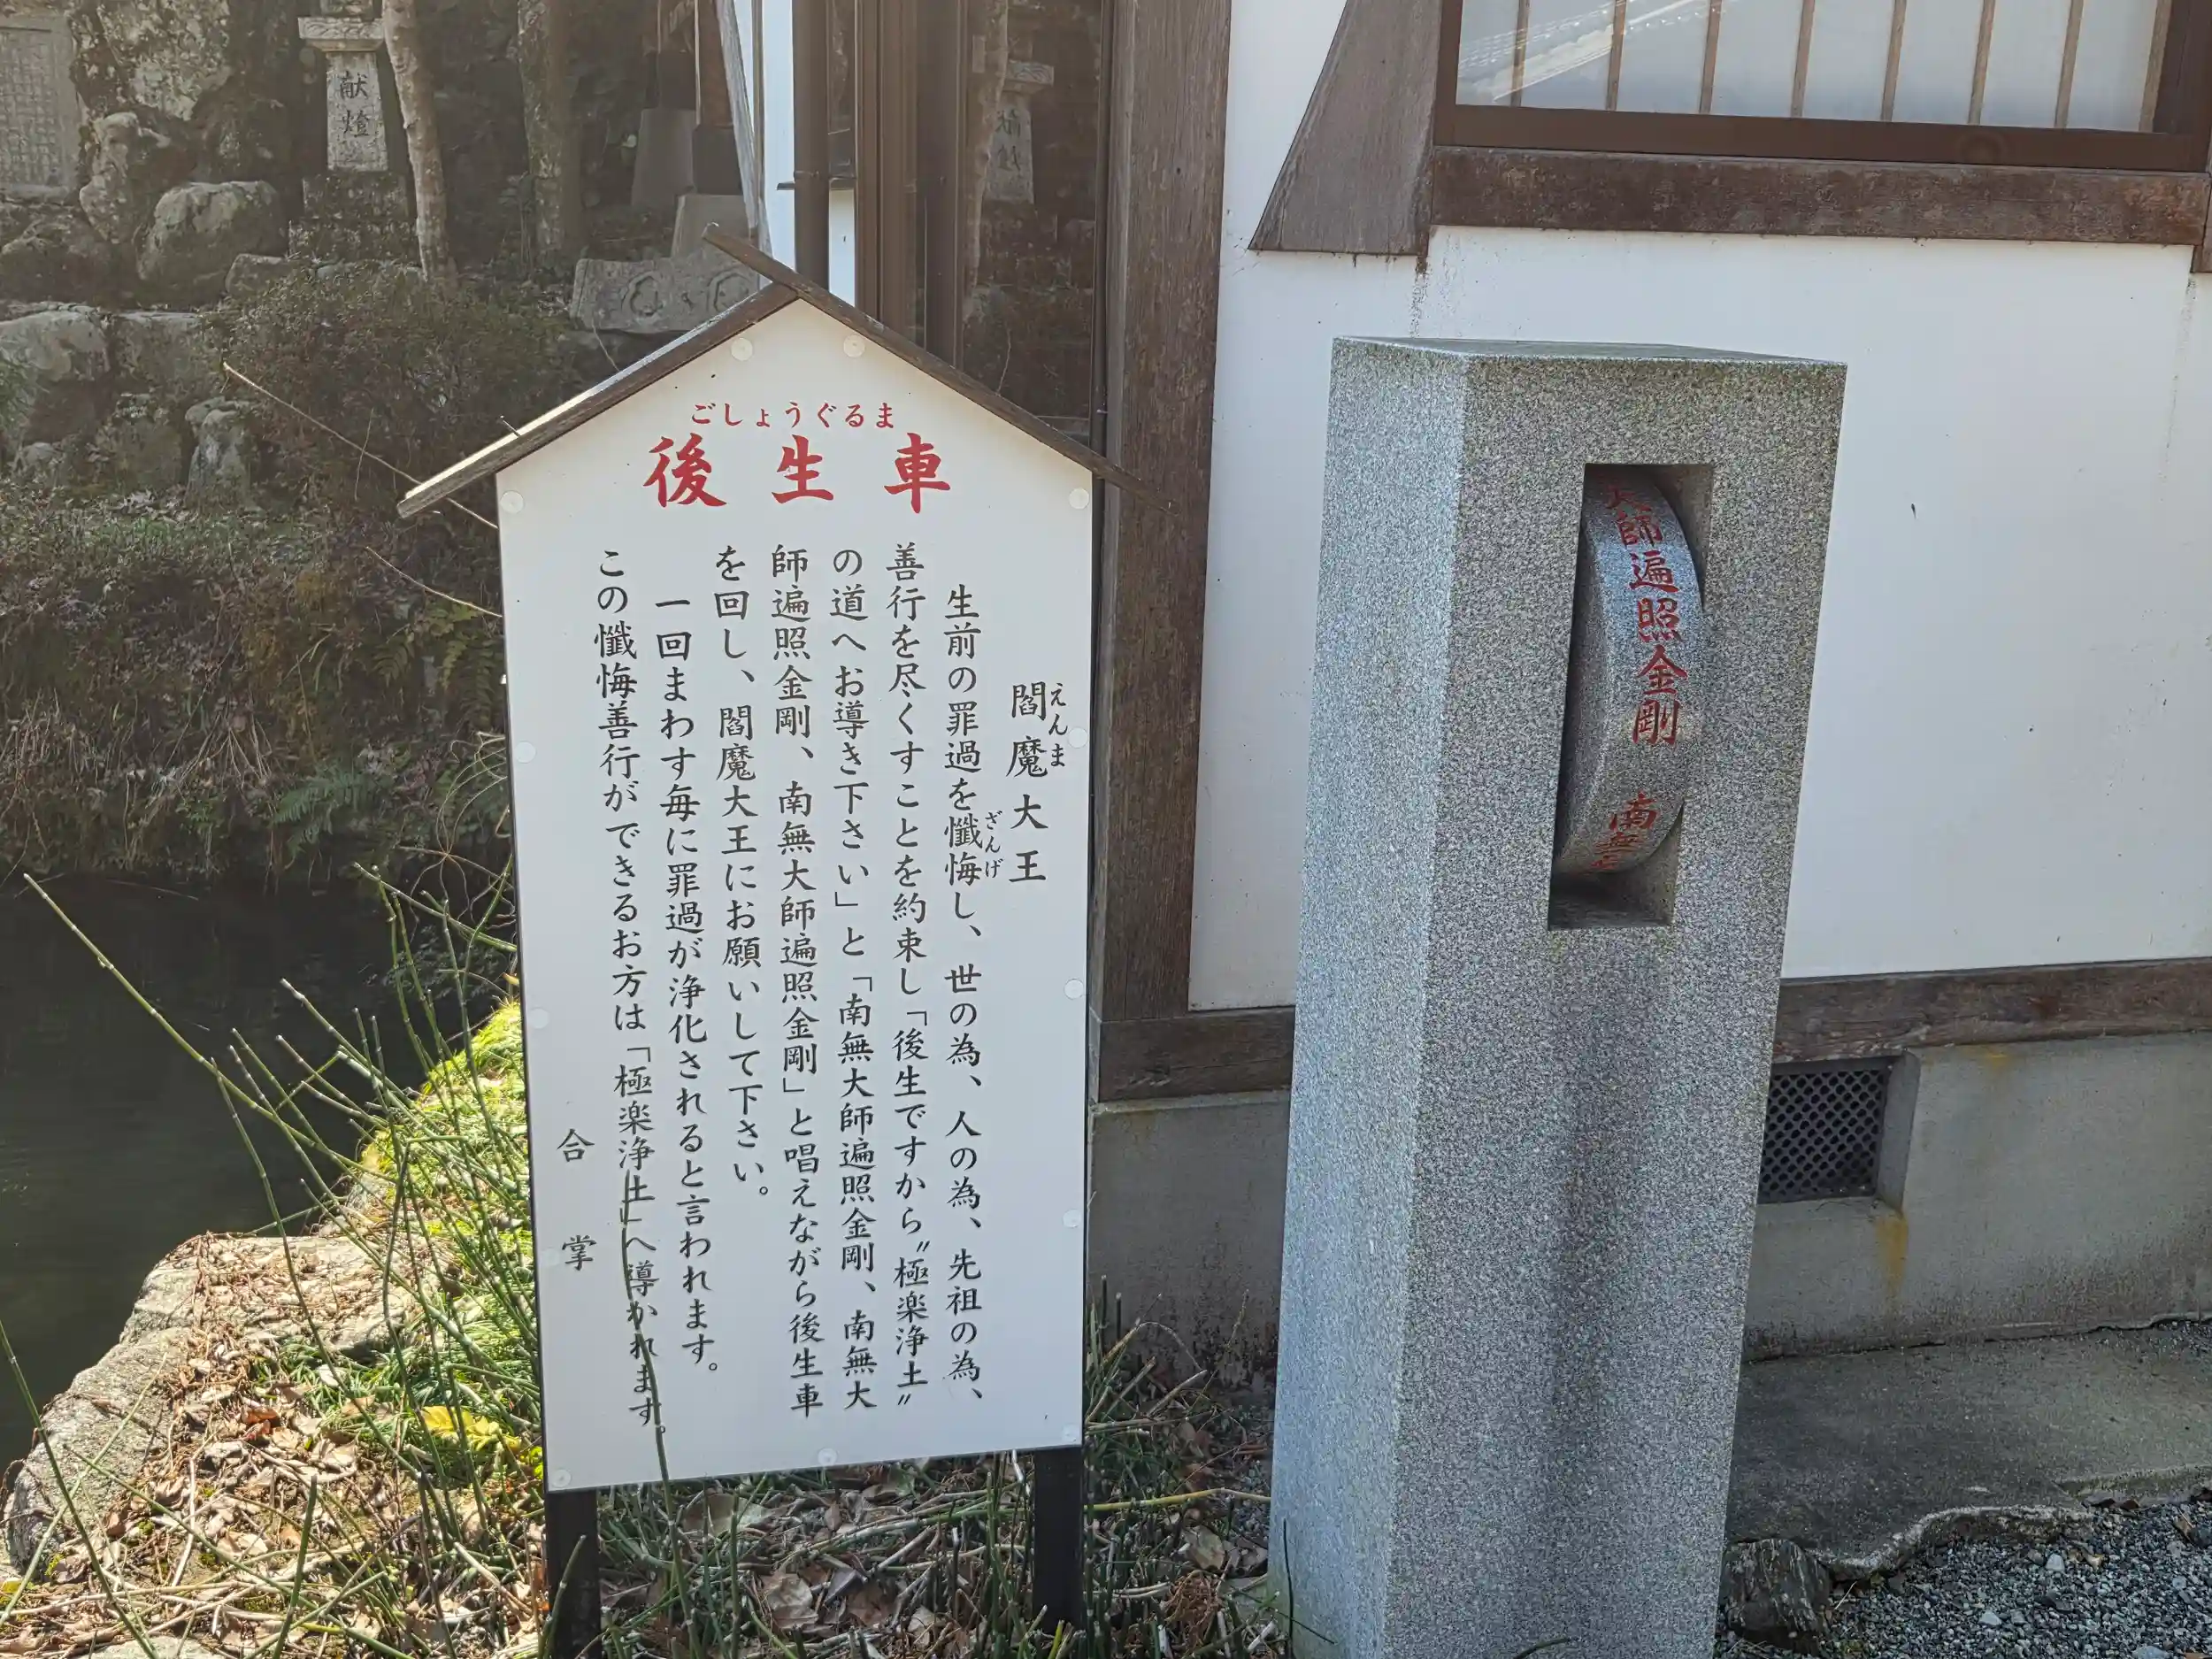 ごしょうぐるま
後生車
閻魔大王
えんま
生前の罪過を懺悔し、世の為、人の為、先祖の為、
ざんげ
善行を尽くすことを約束し「後生ですから〝極楽浄土〟
の道へお導き下さい」と「南無大師遍照金剛、南無大
師遍照金剛、南無大師遍照金剛」と唱えながら後生車
を回し、閻魔大王にお願いして下さい。
一回まわす毎に罪過が浄化されると言われます。
この懺悔善行ができるお方は「極楽浄土」へ導かれます。
合掌
大師遍照金剛 南無
献燈